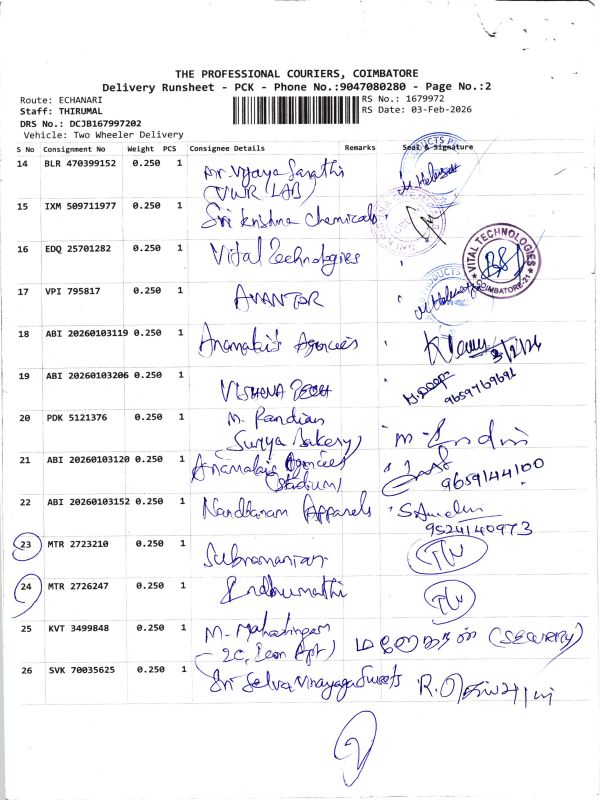 THE PROFESSIONAL COURIERS, COIMBATORE
Delivery Runsheet - PCK - Phone No.:9047080280 - Page No.:2
Route: ECHANARI
RS No.: 1679972
Staff: THIRUMAL
RS Date: 03-Feb-2026
DRS No.: DCJB167997202
Vehicle: Two Wheeler Delivery
S No Consignment No Weight PCS Consignee Details Remarks Seal & Signature
14 BLR 470399152 0.250 1 Mr. Vijaya Sarathi
(VWR (LAB)
15 IXM 509711977 0.250 1 Sri Krishna Chemicals
16 EDQ 25701282 0.250 1 Vital Technologies
VITAL TECHNOLOGIES
COIMBATORE-21
17 VPI 795817 0.250 1 AVANTOR
18 ABI 20260103119 0.250 1 Anamalai's Agencies 3/2/26
19 ABI 20260103206 0.250 1 VISHNA TECH
9659769691
20 PDK 5121376 0.250 1 M. Pandian
(Surya Bakery)
21 ABI 20260103120 0.250 1 Anamalais Agencies
(Stadium) 9659144100
22 ABI 20260103152 0.250 1 Nandtanam Apparels
9524140973
23 MTR 2723210 0.250 1 Subramanian
24 MTR 2726247 0.250 1 Indhumathi
25 KVT 3499848 0.250 1 M. Mahalingam (Security)
26 SVK 70035625 0.250 1 Sri Selva Vinayaga Sweets